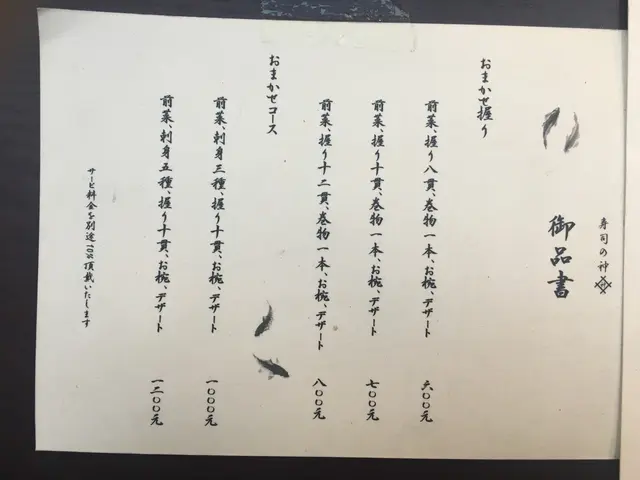 寿司の神
御品書
おまかせ握り
前菜、握り八貫、巻物一本、お椀、デザート 六〇〇元
前菜、握り十貫、巻物一本、お椀、デザート 七〇〇元
前菜、握り十二貫、巻物一本、お椀、デザート 八〇〇元
おまかせコース
前菜、刺身三種、握り十貫、お椀、デザート 一〇〇〇元
前菜、刺身五種、握り十貫、お椀、デザート 一二〇〇元
サービ料金を別途10%頂戴いたします